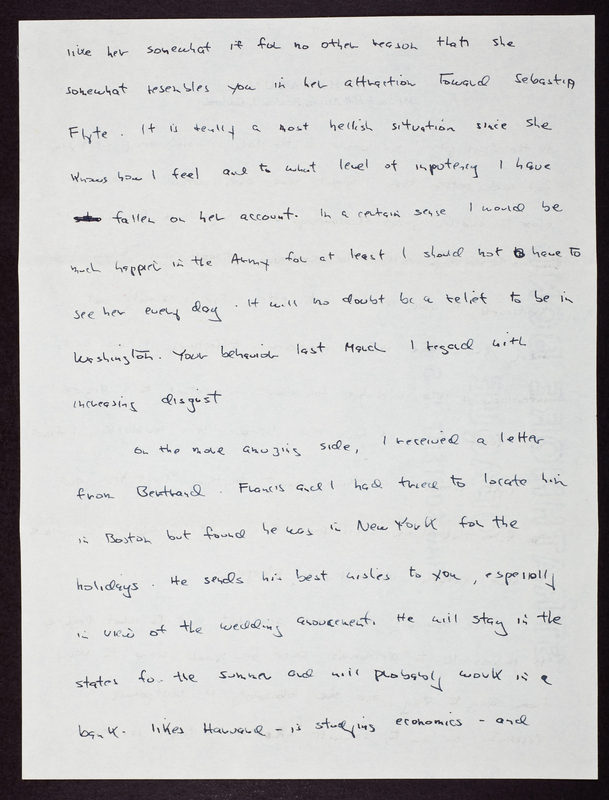 like her somewhat if for no other reason that she
somewhat resembles you in her attraction toward Sebastia
Flyte. It is really a most hellish situation since she
knows how I feel and to what level of impotency I have
fallen on her account. In a certain sense I would be
much happier in the Army for at least I should not have to
see her every day. It will no doubt be a relief to be in
Washington. Your behavior last March I regard with
increasing disgust
On the more amusing side, I received a letter
from Bertrand. Francis and I had tried to locate him
in Boston but found he was in New York for the
holidays. He sends his best wishes to you, especially
in view of the wedding anouncement. He will stay in the
states for the summer and will probably work in a
bank. likes Harvard - is studying economics - and